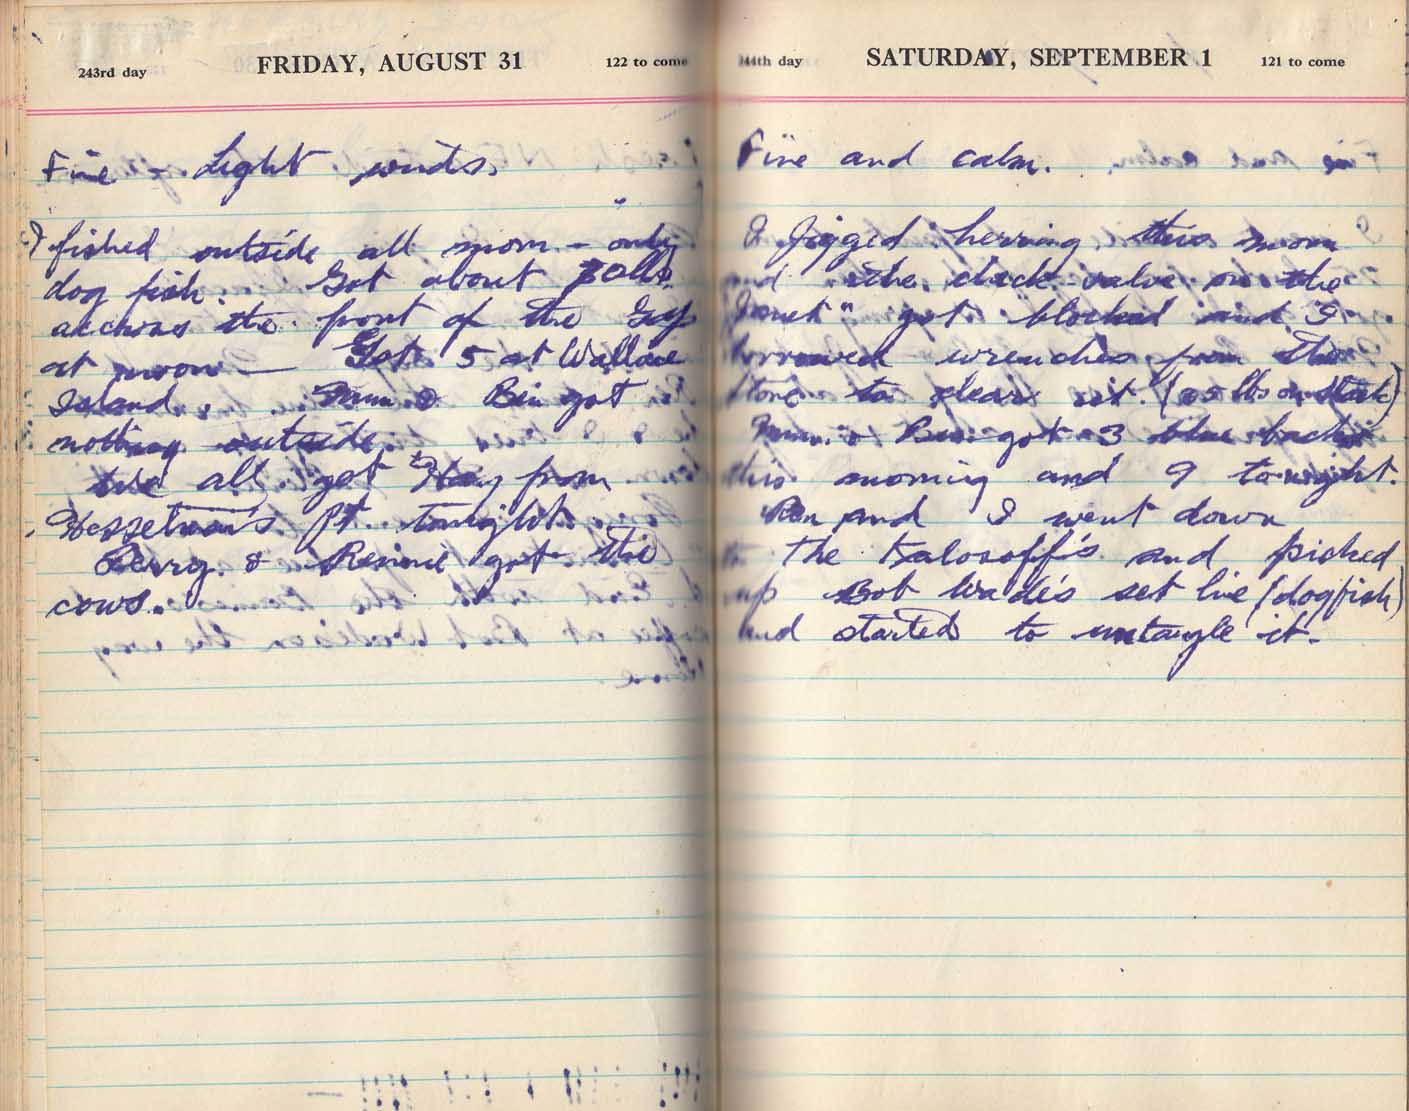 243rd day FRIDAY, AUGUST 31 122 to come
Fine - Light winds.
I fished outside all morn - only
dog fish. Got about
accross the front of the Gap
at noon — Got 5 at Wallace
Island. Mum & Ben got
nothing outside.
We all got Hay from
Hesselman's Pt. tonight.
Perry & got the
cows.
244th day SATURDAY, SEPTEMBER 1 121 to come
Fine and calm.
I Jigged herring this morn
and the check valve on the
" got blocked and I
borrowed wrenches from the
store to clear it. ( lbs on
Mum & Ben got 3 blue backs
this morning and 9 tonight.
Ben and I went down
to the Kalosoff's and picked
up Bob Wade's set line (dogfish)
and started to untangle it.